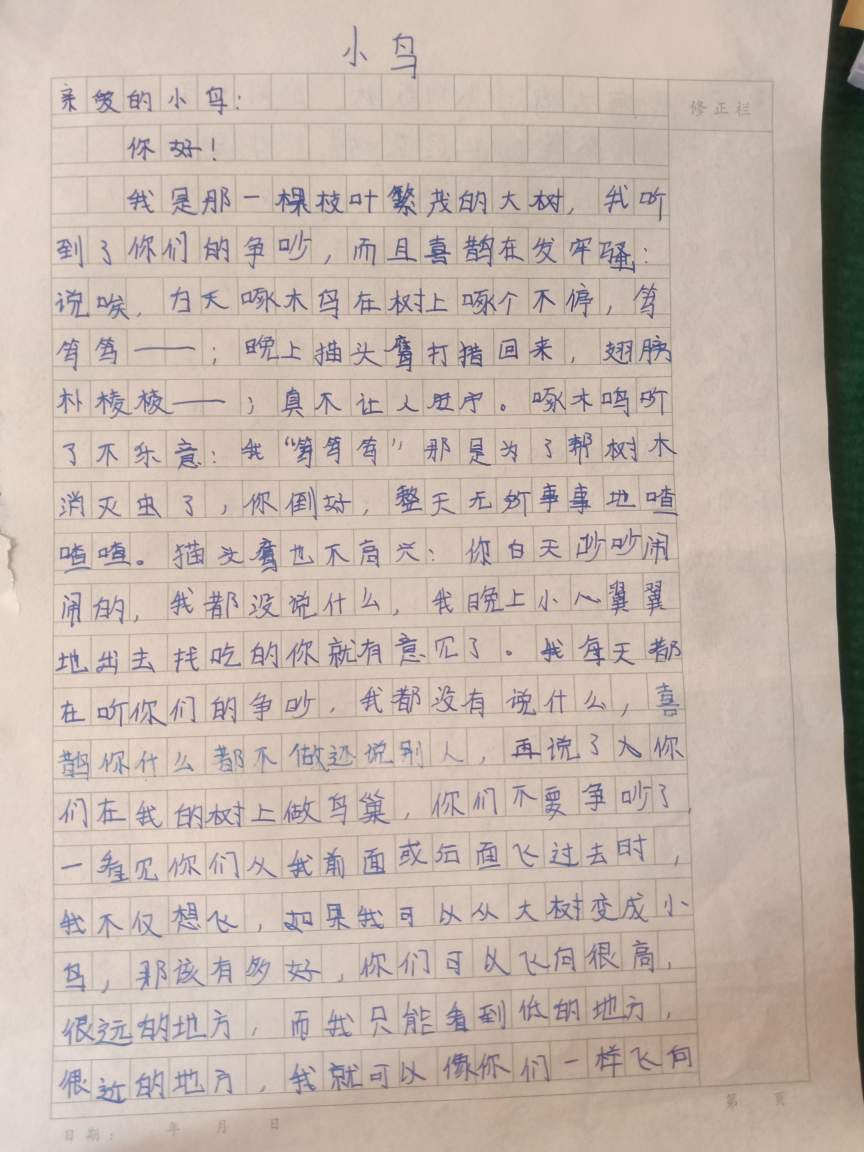 小鸟
亲爱的小鸟：
修正栏
你好！
我是那一棵枝叶繁茂的大树，我听
到了你们的争吵，而且喜鹊在发牢骚：
说唉，白天啄木鸟在树上啄个不停，笃
笃笃——；晚上猫头鹰打猎回来，翅膀
朴棱棱——；真不让人安宁。啄木鸣听
了不乐意：我“笃笃笃”那是为了帮树木
消灭虫了，你倒好，整天无所事事地喳
喳喳。猫头鹰也不高兴：你白天吵吵闹
闹的，我都没说什么，我晚上小心翼翼
地出去找吃的你就有意见了。我每天都
在听你们的争吵，我都没有说什么，喜
鹊你什么都不做还说别人，再说了你
们在我的树上做鸟巢，你们不要争吵了，
一看见你们从我前面或后面飞过去时，
我不仅想飞，如果我可以从大树变成小
鸟，那该有多好，你们可以飞向很高，
很远的地方，而我只能看到低的地方，
很近的地方，我就可以像你们一样飞向
第 页
日期： 年 月 日